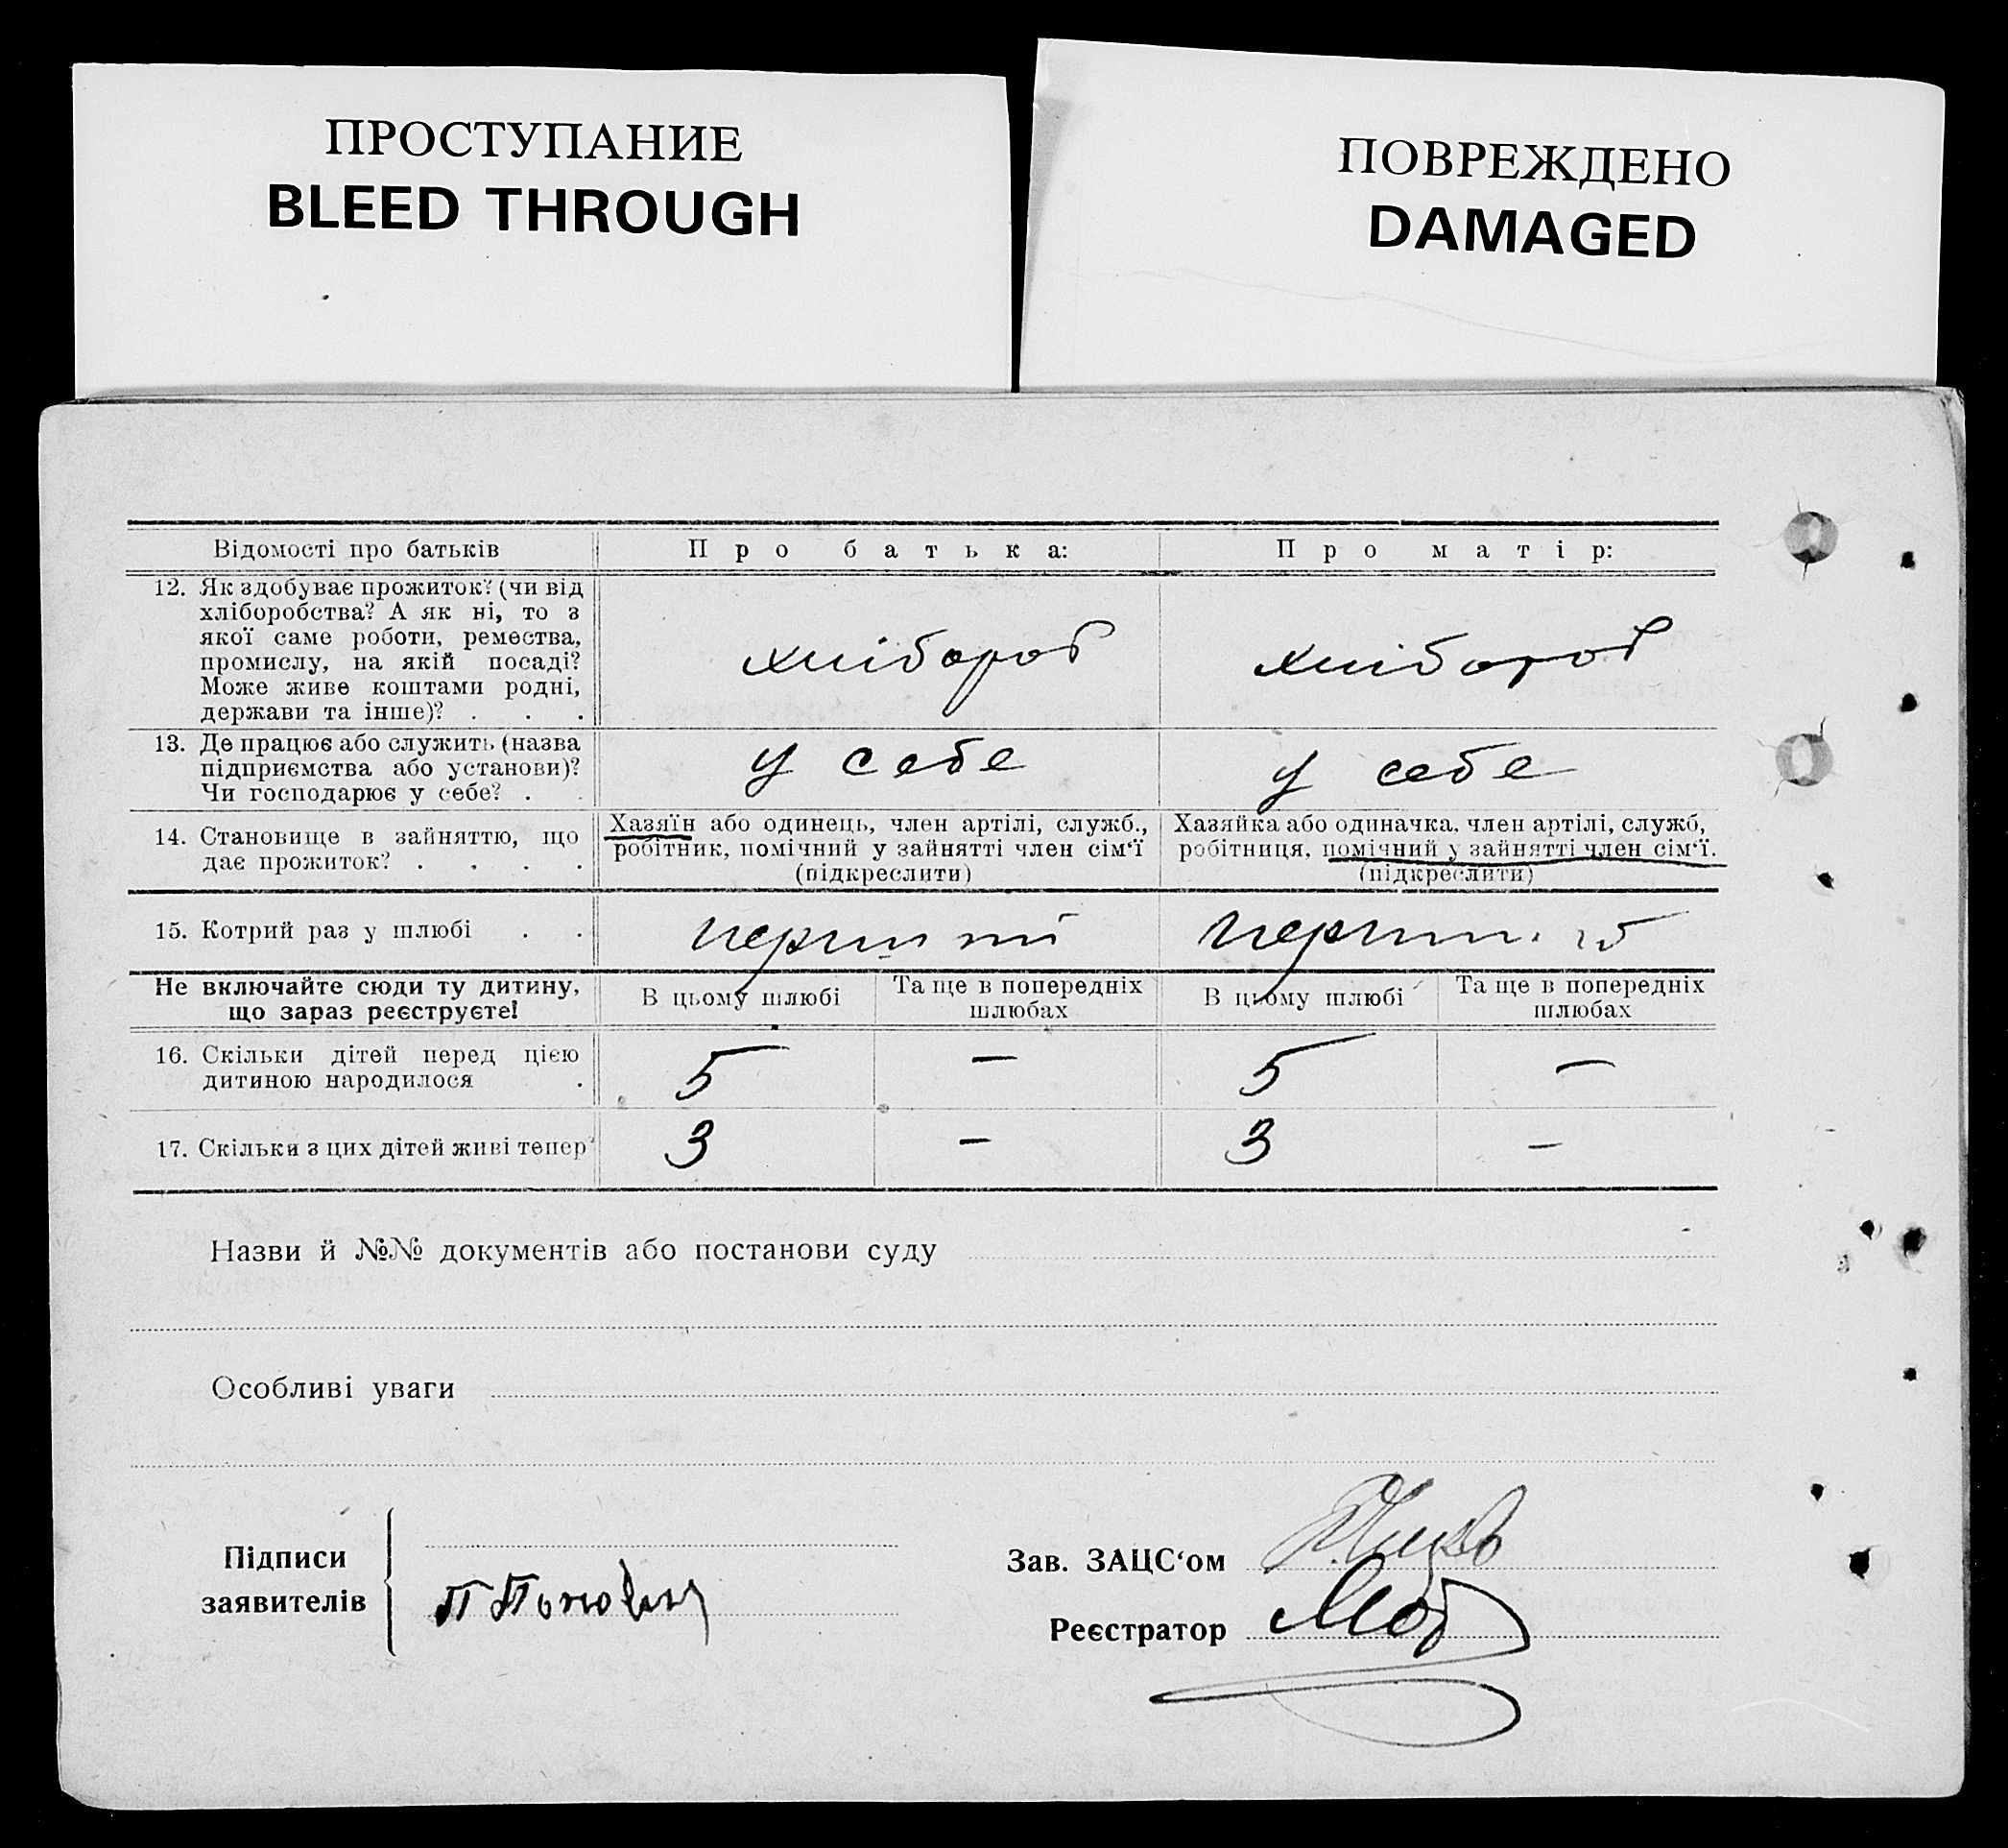 ПРОСТУПАНИЕ
BLEED THROUGH
ПОВРЕЖДЕНО
DAMAGED
Відомості про батьків
Про батька:
Про матір:
12. Як здобуває прожиток? (чи від
хліборобства? А як ні, то з
якої саме роботи, ремества,
промислу, на якій посаді?
Може живе коштами родні,
держави та інше)? . . .
хлібороб
хлібороб
13. Де працює або служить (назва
підприємства або установи)?
Чи господарює у себе? . .
у себе
у себе
14. Становище в зайняттю, що
дає прожиток? . . . .
Хазяїн або одинець, член артілі, служб.,
робітник, помічний у зайнятті член сім‘ї
(підкреслити)
Хазяйка або одиначка, член артілі, служб,
робітниця, помічний у зайнятті член сім‘ї.
(підкреслити)
15. Котрий раз у шлюбі . .
перший
Не включайте сюди ту дитину,
що зараз реєструєте!
В цьому шлюбі
Та ще в попередніх
шлюбах
В цьому шлюбі
Та ще в попередніх
шлюбах
16. Скільки дітей перед цією
дитиною народилося .
5
—
5
—
17. Скільки з цих дітей живі тепер
3
—
3
—
Назви й №№ документів або постанови суду
Особливі уваги
Підписи
заявителів
Зав. ЗАЦС‘ом
Реєстратор